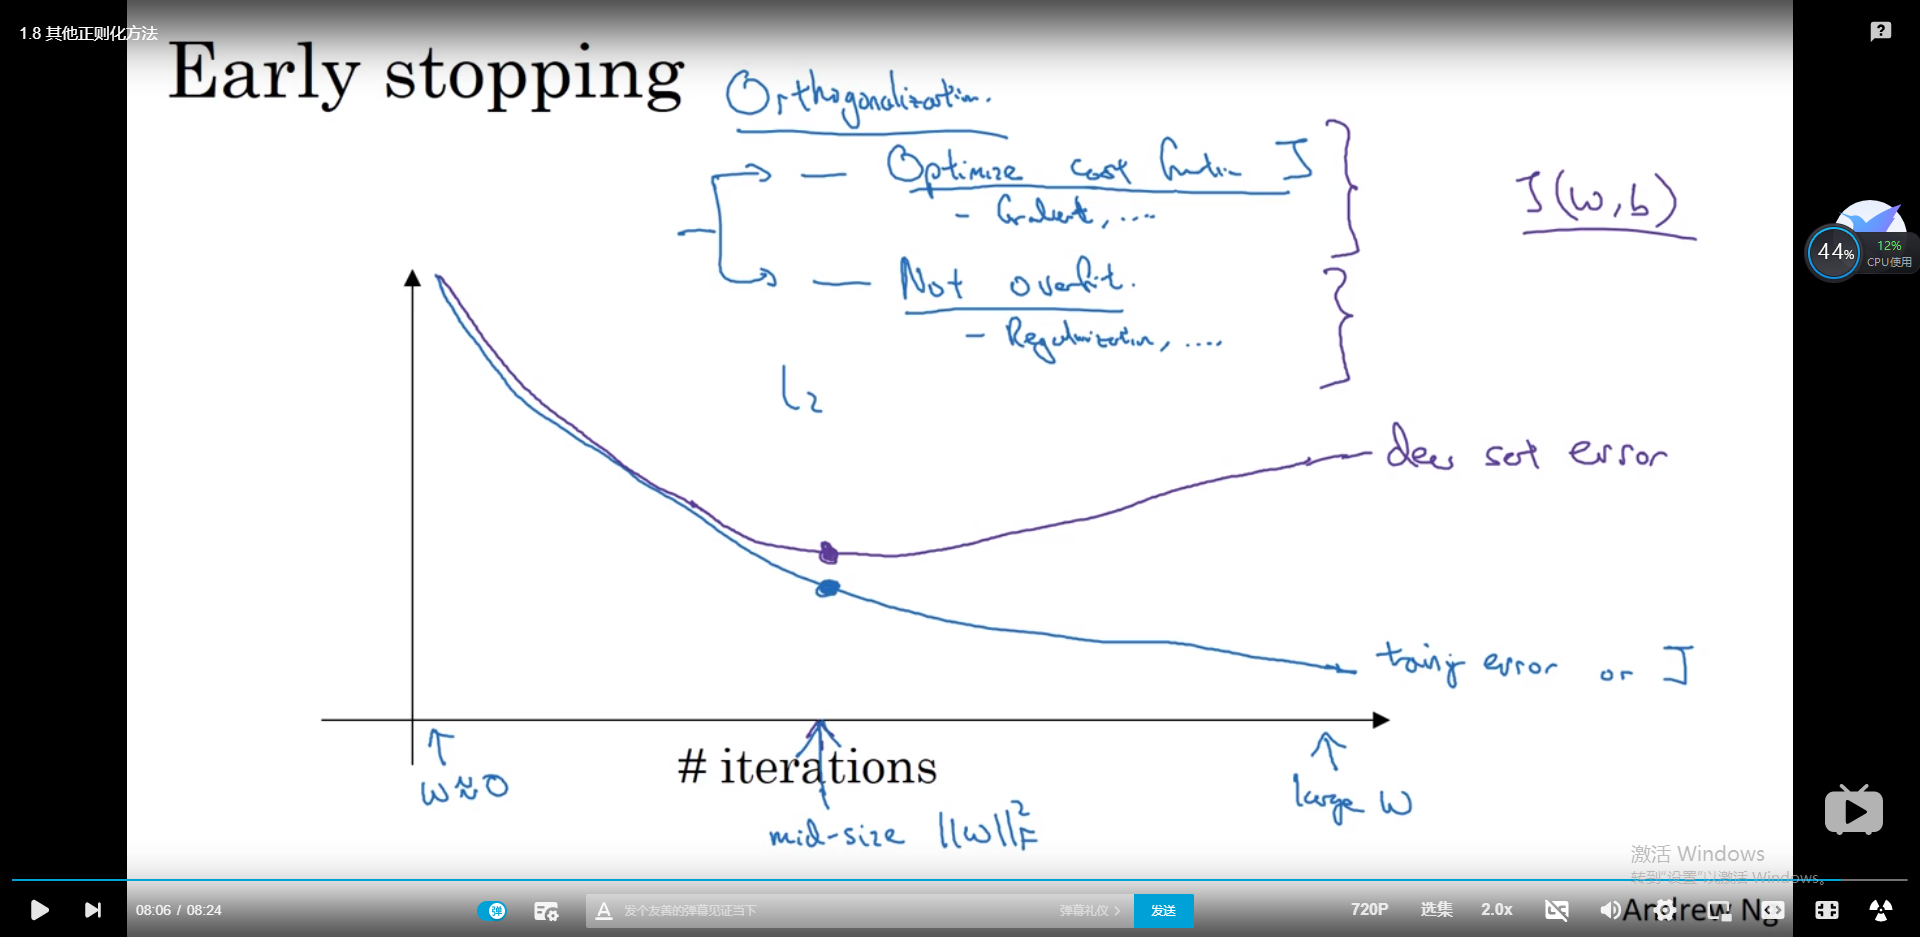 1.8 其他正则化方法
Early stopping
Orthogonalization.
— Optimize cost function J
- Gradient, ....
J(w,b)
— Not overfit.
- Regularization, ....
L2
dev set error
44%
12%
CPU使用
training error or J
# iterations
w≈0
large w
mid-size ||w||²F
激活 Windows
转到“设置”以激活 Windows。
08:06 / 08:24
弹
A
发个友善的弹幕见证当下
弹幕礼仪 >
发送
720P
选集
2.0x
Andrew Ng